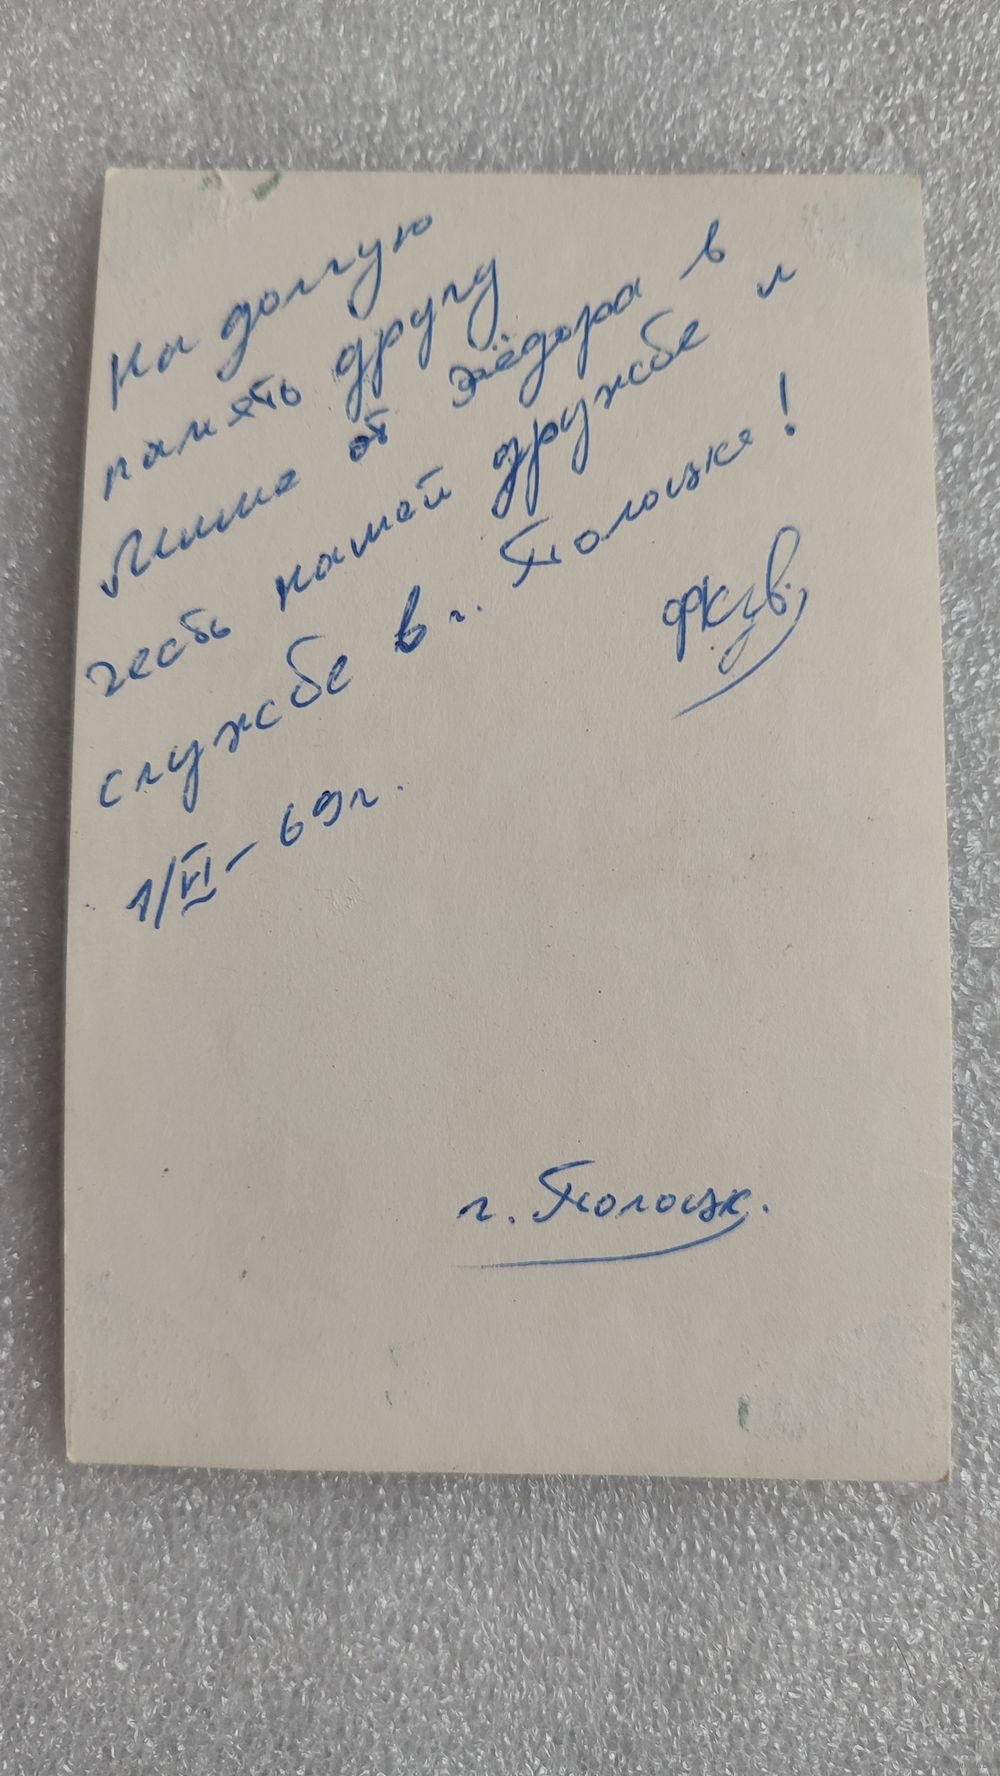 На долгую
память другу
Мише от Фёдора в
честь нашей дружбе и
службе в г. Полоцке!
1/VI – 69 г.
г. Полоцк.